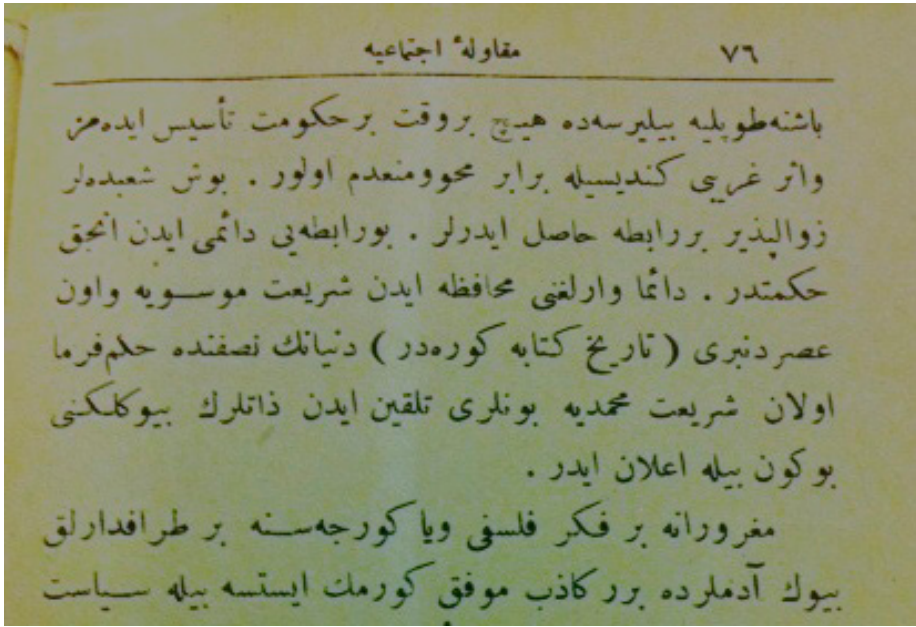 مقاولهٔ اجتماعیه ٧٦
باشنه‌طوپلیه بیلیرسه‌ده هیچ بروقت برحکومت تأسیس ایده‌مز
واثر غریبی کندیسیله برابر محوومنعدم اولور . بوش شعبده‌لر
زوالپذیر بررابطه حاصل ایدرلر . بورابطه‌یی دائمی ایدن انجق
حکمتدر . دائما وارلغنی محافظه ایدن شریعت موسویه واون
عصردنبری ( تاریخ کتابه کوره‌در ) دنیانك نصفنده حکمفرما
اولان شریعت محمدیه بونلری تلقین ایدن ذاتلرك بیوکلکنی
بوکون بیله اعلان ایدر .
مغرورانه بر فکر فلسفی ویا کورجه‌سنه بر طرافدارلق
بیوك آدملرده برر کاذب موفق کورمك ایستسه بیله سیاست